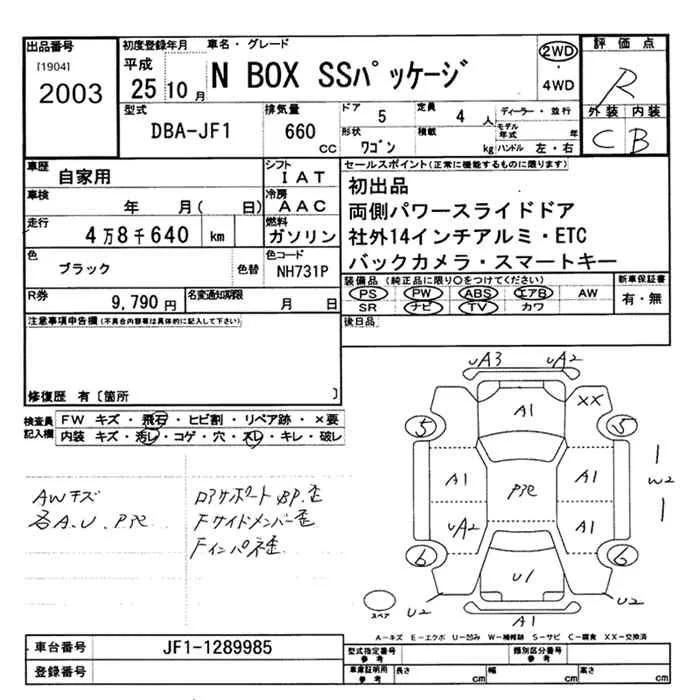 出品番号
[1904]
2003
初度登録年月 車名・グレード
平成
25 10 月
N BOX SSパッケージ
2WD
・
4WD
評価点
R
外装 内装
C B
型式
DBA-JF1
排気量
660 CC
ドア 5
定員 4 人
ディーラー・並行
形状 ワゴン
積載 kg
モデル年式 年
ハンドル 左・右
車歴
自家用
シフト
IAT
車検
年 月( 日)
冷房
AAC
走行
4万8千640 km
燃料
ガソリン
色
ブラック
色替
色コード
NH731P
R券
9,790 円
名変通知期限
月 日
セールスポイント(正常に機能するものに限ります)
初出品
両側パワースライドドア
社外14インチアルミ・ETC
バックカメラ・スマートキー
装備品(純正品に限り○をつけてください)
新車保証書
PS PW ABS エアB AW
SR ナビ TV カワ
有・無
後日品
注意事項申告欄(不具合内容等は具体的に記入して下さい)
修復歴 有〔箇所 〕
検査員
記入欄
FW キズ・飛石・ヒビ割・リペア跡・×要
内装 キズ・汚レ・コゲ・穴・スレ・キレ・破レ
AWキズ
各A.U.P3e
ロアサポート
歪
Fサイドメンバー歪
Fインパネ歪
UA3 UA2
A1
XX
5 5
A1 P3e A1
UA2 A1
W2
6 6
U1
U2 U2
A1
スペア
A-キズ E-エクボ U-凹み W-補修跡 S-サビ C-腐食 XX-交換済
車台番号
JF1-1289985
登録番号
型式指定番号
参考
類別区分番号
参考
車庫証明用
参考
長さ cm
幅 cm
高さ cm